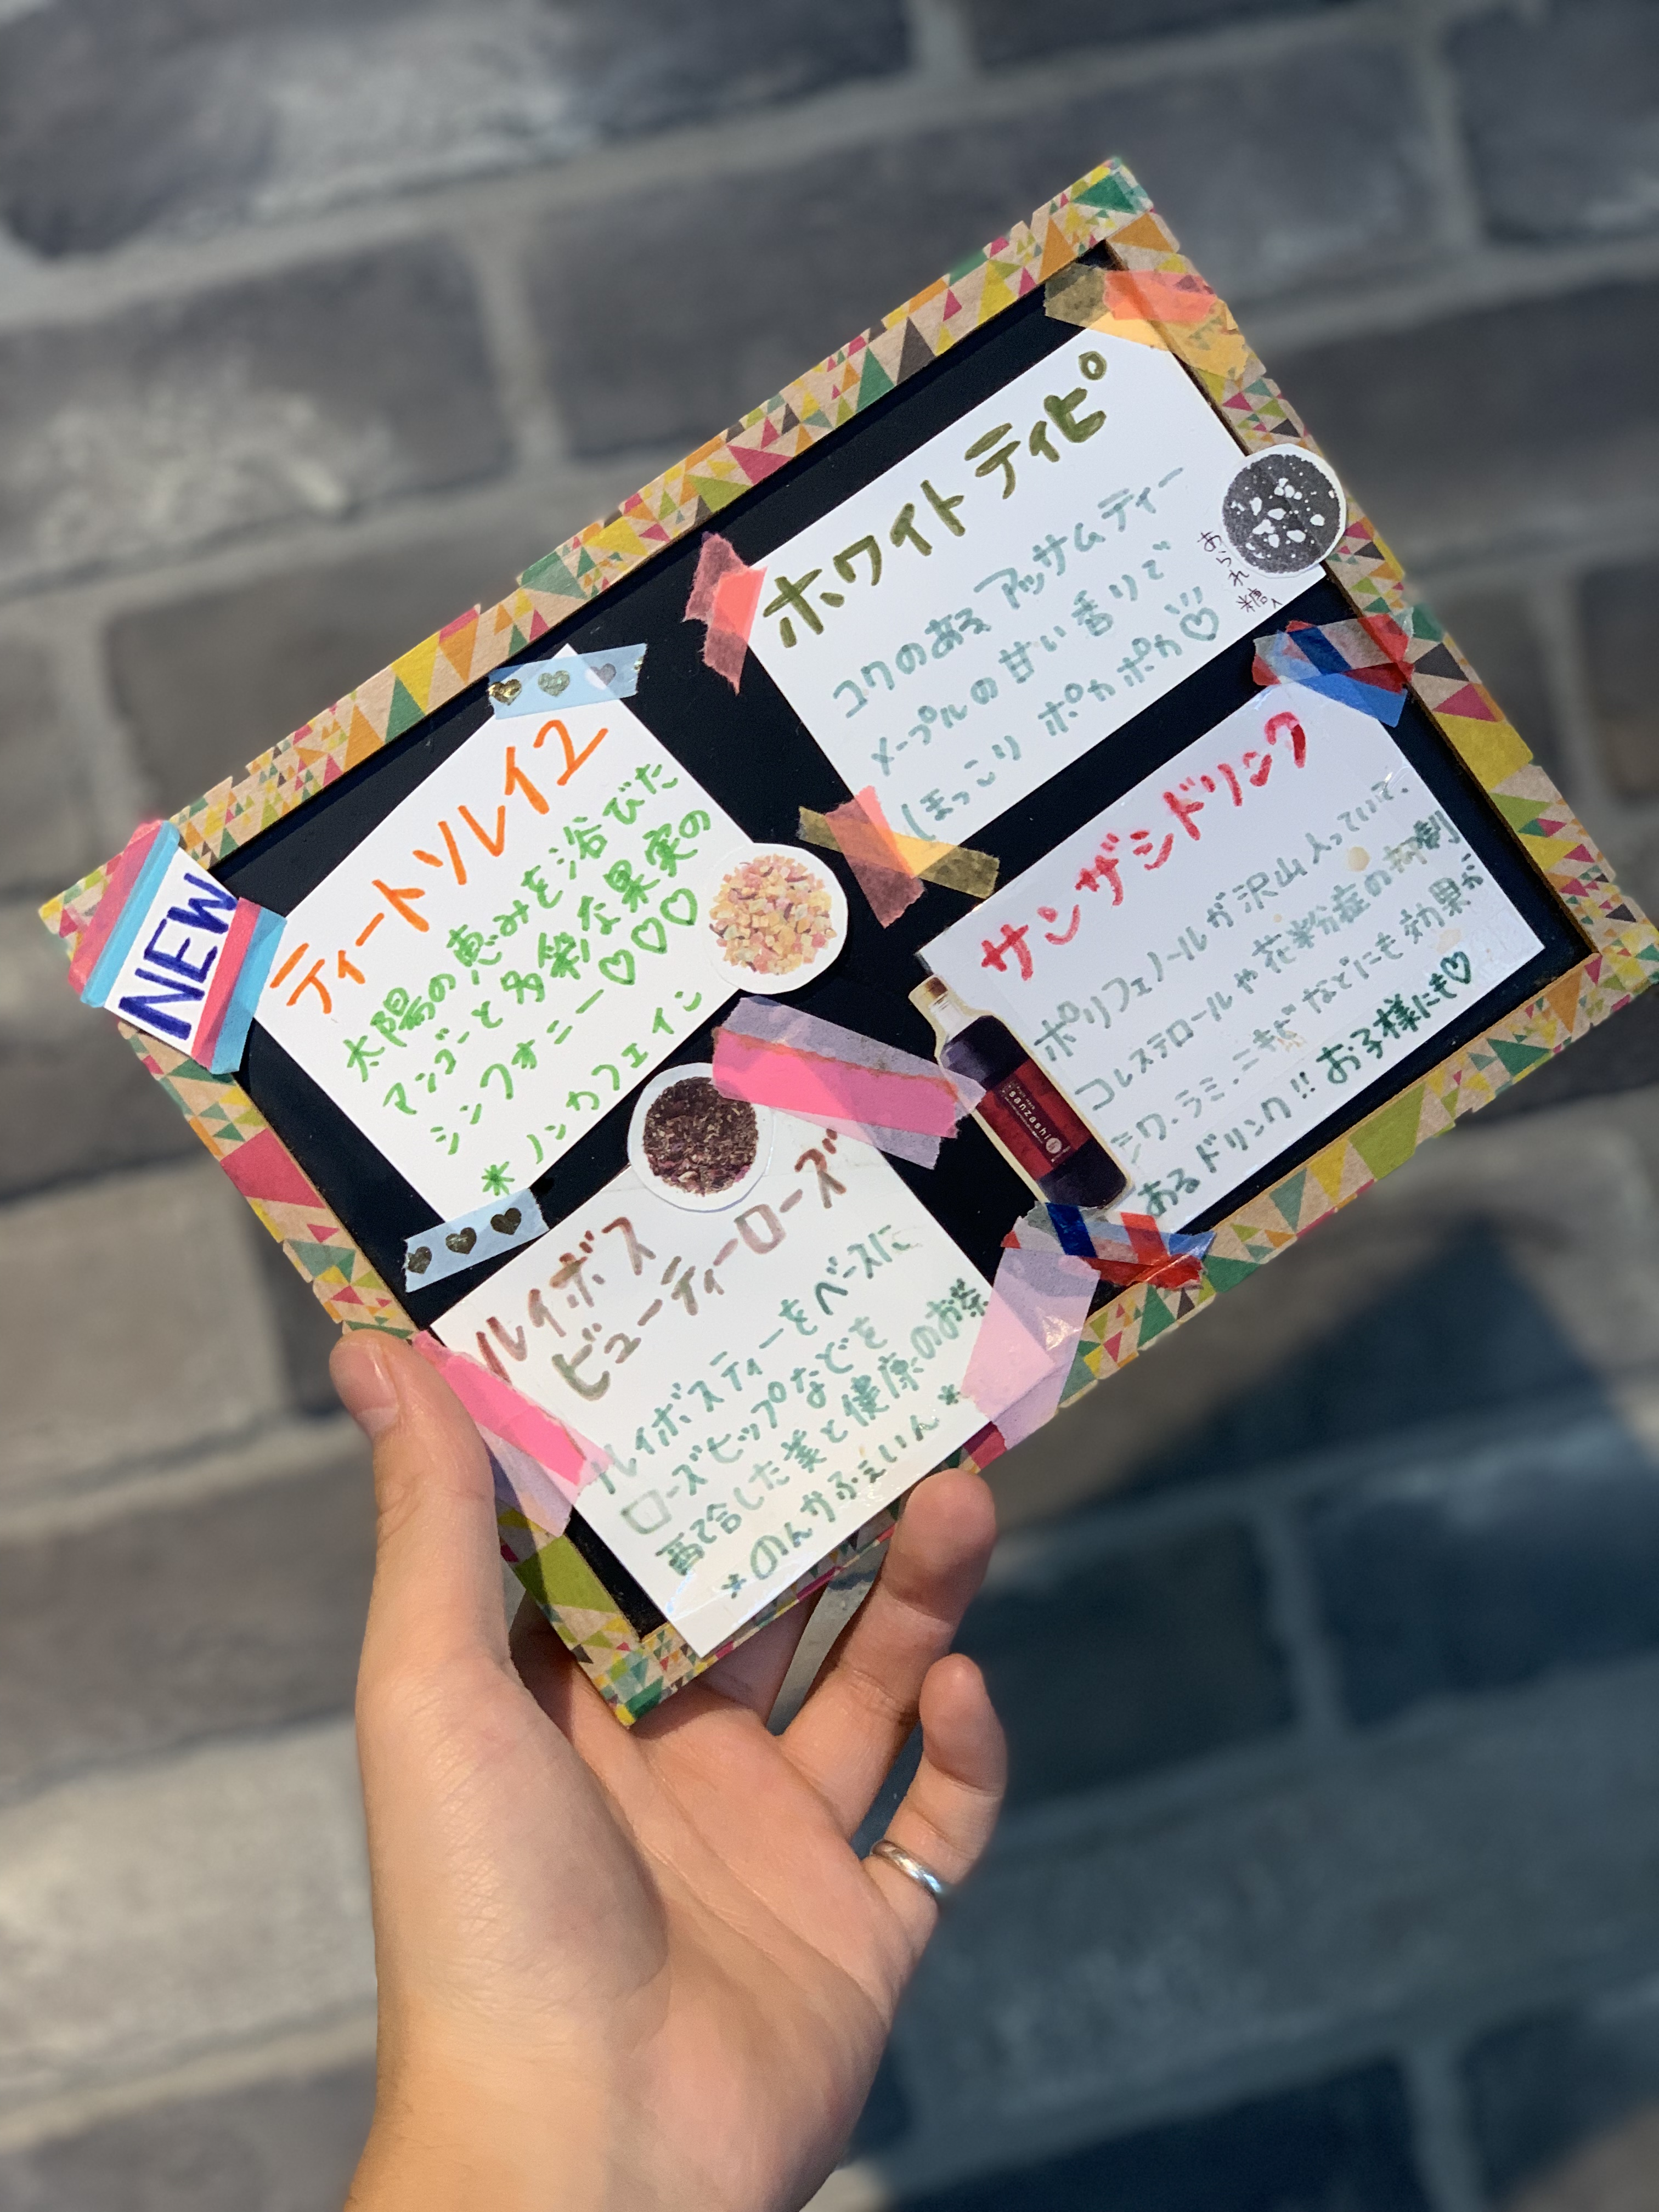 NEW
ティートソレイユ
太陽の恵みを浴びた
マンゴーと多彩な果実の
シンフォニー♡♡♡
* ノンカフェイン
ホワイトティピ
コクのある アッサムティー
メープルの甘い香りで
ほっこり ポカポカ♡
あられ糖入
ルイボス
ビューティーローズ
ルイボスティーをベースに
ローズヒップなどを
配合した美と健康のお茶
*のんかふぇいん*
サンザシドリンク
ポリフェノールが沢山入っていて、
コレステロールや花粉症の抑制
シワ.シミ.ニキビなどにも効果が
あるドリンク!! お子様にも♡
sanzashi